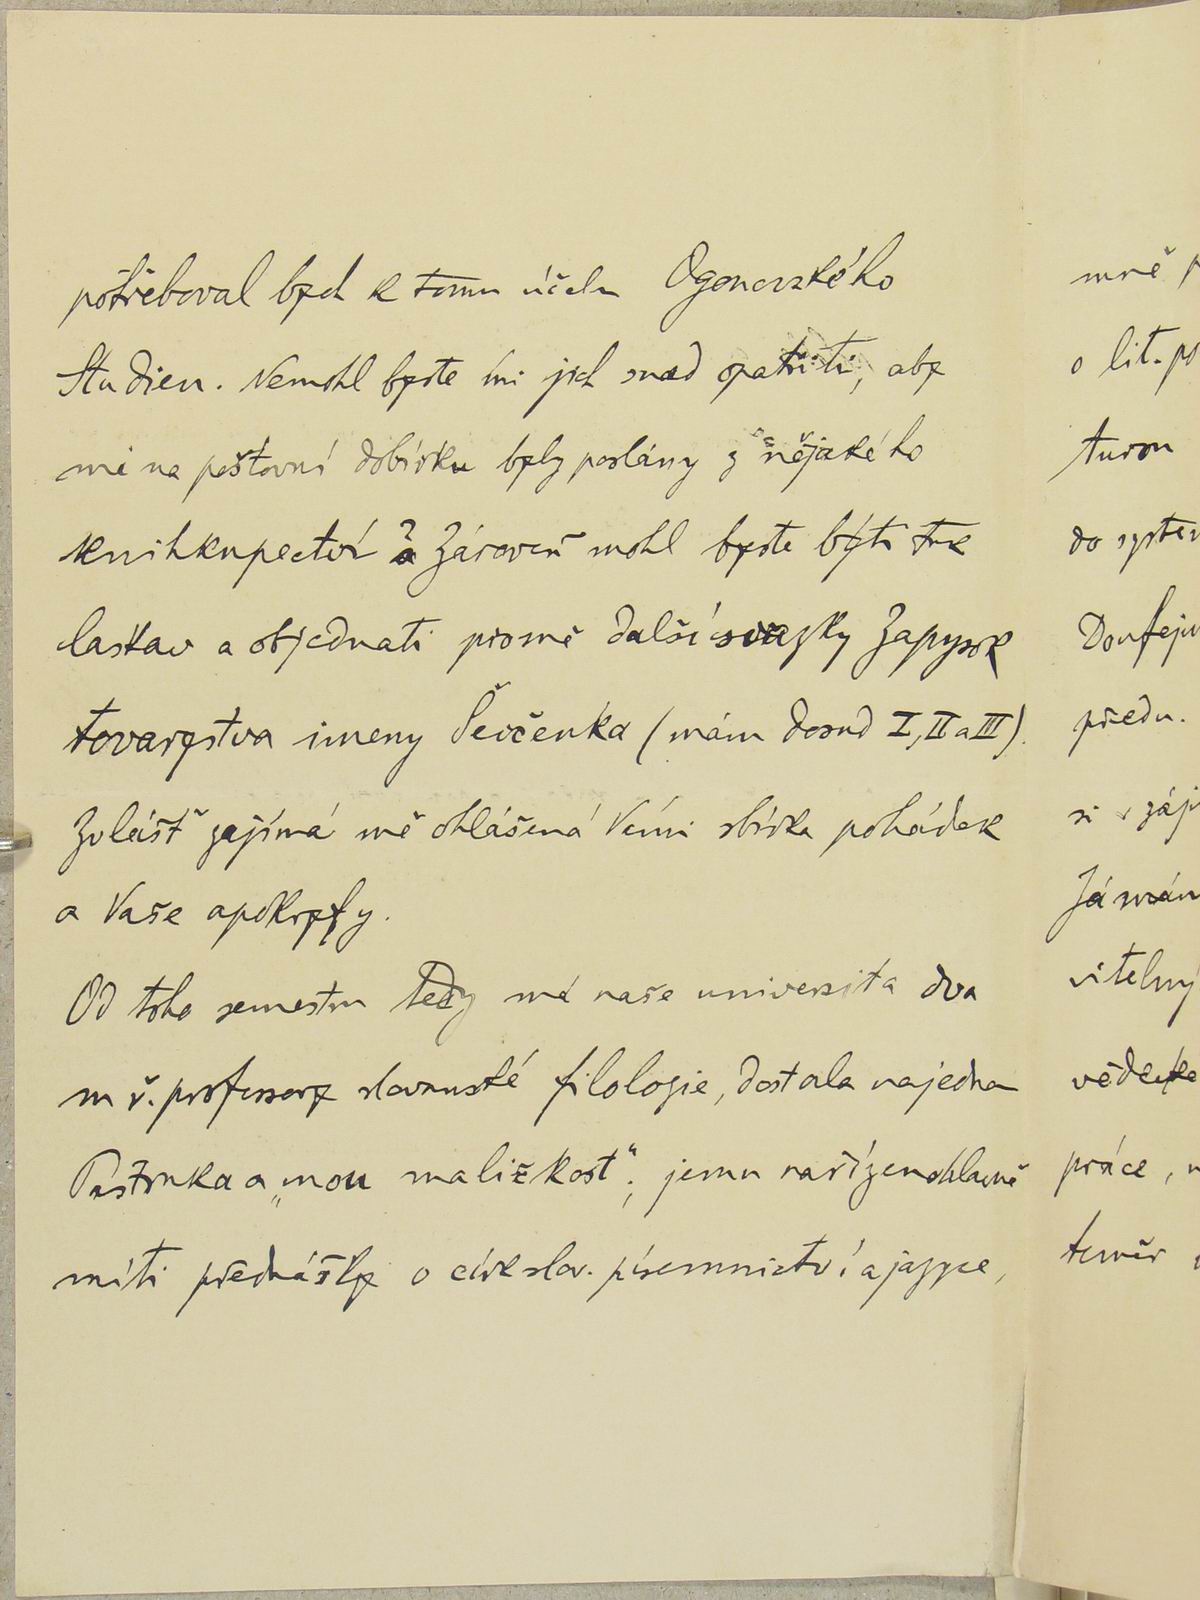 potřeboval bych k tomu účelu Ogonovského
Studien. Nemohl byste mi jich snad opatřiti, aby
mě na poštovní dobírku byly poslány z nějakého
knihkupectví? Zároveň mohl byste býti tak
laskav a objednati pro mě další svazky Zapysok
tovarystva imeny Ševčenka (mám dosud I, II a III).
Zvlášť zajímá mě ohlášená Vámi sbírka pohádek
a Vaše apokryfy.
Od toho semestru tedy má naše universita dva
m ř. professory slovanské filologie, dostala najedna
Pastrnka a „mou maličkost“; jemu nařízeno hlavně
míti přednášky o církslov. písemnictví a jazyce,
mně
o lit.
do
předn.
si
Já mám
práce,
téměř